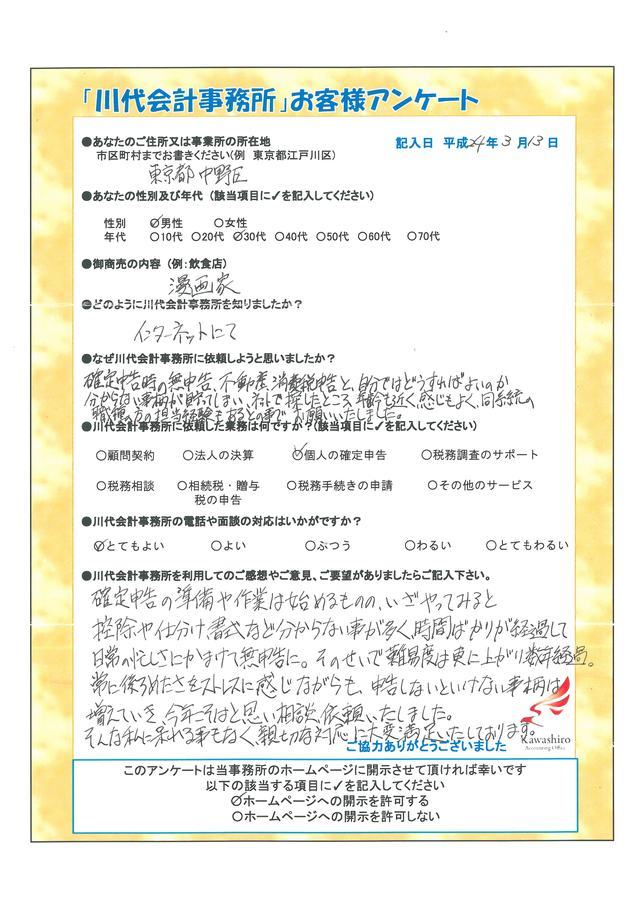 「川代会計事務所」お客様アンケート
●あなたのご住所又は事業所の所在地
記入日 平成24年3月13日
市区町村までお書きください(例 東京都江戸川区)
東京都中野区
●あなたの性別及び年代 (該当項目に✓を記入してください)
性別 ✓男性 ○女性
年代 ○10代 ○20代 ✓30代 ○40代 ○50代 ○60代 ○70代
●御商売の内容 (例:飲食店)
漫画家
●どのように川代会計事務所を知りましたか?
インターネットにて
●なぜ川代会計事務所に依頼しようと思いましたか?
確定申告時の無申告、不動産、消費税申告と、自分ではどうすればよいのか
分からない事柄が貯てしまい、ネットで探したところ、年齢も近く、感じもよく、同系統の
職種の方の担当経験もあるとの事で、お願いいたしました。
●川代会計事務所に依頼した業務は何ですか?(該当項目に✓を記入してください)
○顧問契約 ○法人の決算 ✓個人の確定申告 ○税務調査のサポート
○税務相談 ○相続税・贈与 ○税務手続きの申請 ○その他のサービス
税の申告
●川代会計事務所の電話や面談の対応はいかがですか?
✓とてもよい ○よい ○ぶつう ○わるい ○とてもわるい
●川代会計事務所を利用してのご感想やご意見、ご要望がありましたらご記入下さい。
確定申告の準備や作業は始めるものの、いざやってみると
控除や仕分け、書式など分からない事が多く、時間ばかりが経過して
日常の忙しさにかまけて無申告に。そのせいで難易度は更に上がり数年経過。
常に後ろめたさをストレスに感じながらも、申告しないといけない事柄は
増えていき、今年こそはと思い相談、依頼いたしました。
そんな私に呆れる事もなく、親切な対応に大変満足いたしております。
ご協力ありがとうございました
Kawashiro
Accounting Office
このアンケートは当事務所のホームページに開示させて頂ければ幸いです
以下の該当する項目に✓を記入してください
✓ホームページへの開示を許可する
○ホームページへの開示を許可しない